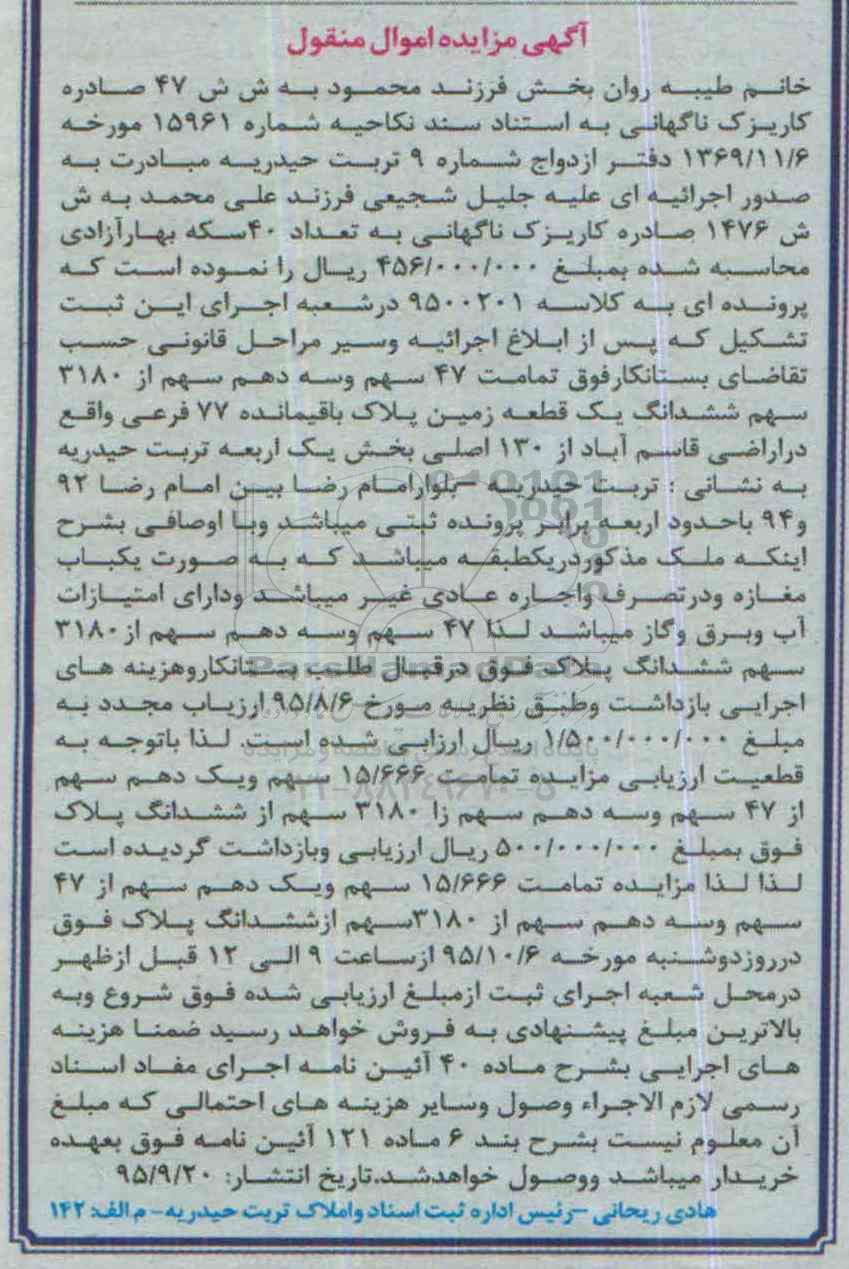 آگهی مزایده اموال منقول
خانم طیبه روان بخش فرزند محمود به ش ش ۴۷ صادره
کاریزک ناگهانی به استناد سند نکاحیه شماره ۱۵۹۶۱ مورخه
۱۳۶۹/۱۱/۶ دفتر ازدواج شماره ۹ تربت حیدریه مبادرت به
صدور اجرائیه ای علیه جلیل شجیعی فرزند علی محمد به ش
ش ۱۴۷۶ صادره کاریزک ناگهانی به تعداد ۴۰سکه بهارآزادی
محاسبه شده بمبلغ ۴۵۶/۰۰۰/۰۰۰ ریال را نموده است که
پرونده ای به کلاسه ۹۵۰۰۲۰۱ درشعبه اجرای این ثبت
تشکیل که پس از ابلاغ اجرائیه وسیر مراحل قانونی حسب
تقاضای بستانکارفوق تمامت ۴۷ سهم وسه دهم سهم از ۳۱۸۰
سهم ششدانگ یک قطعه زمین پلاک باقیمانده ۷۷ فرعی واقع
دراراضی قاسم آباد از ۱۳۰ اصلی بخش یک اربعه تربت حیدریه
به نشانی : تربت حیدریه –بلوارامام رضا بین امام رضا ۹۲
و۹۴ باحدود اربعه برابر پرونده ثبتی میباشد وبا اوصافی بشرح
اینکه ملک مذکوردریکطبقه میباشد که به صورت یکباب
مغازه ودرتصرف واجاره عادی غیر میباشد ودارای امتیازات
آب وبرق وگاز میباشد لذا ۴۷ سهم وسه دهم سهم از۳۱۸۰
سهم ششدانگ پلاک فوق درقبال طلب بستانکاروهزینه های
اجرایی بازداشت وطبق نظریه مورخ ۹۵/۸/۶ ارزیاب مجدد به
مبلغ ۱/۵۰۰/۰۰۰/۰۰۰ ریال ارزابی شده است. لذا باتوجه به
قطعیت ارزیابی مزایده تمامت ۱۵/۶۶۶ سهم ویک دهم سهم
از ۴۷ سهم وسه دهم سهم زا ۳۱۸۰ سهم از ششدانگ پلاک
فوق بمبلغ ۵۰۰/۰۰۰/۰۰۰ ریال ارزیابی وبازداشت گردیده است
لذا لذا مزایده تمامت ۱۵/۶۶۶ سهم ویک دهم سهم از ۴۷
سهم وسه دهم سهم از ۳۱۸۰سهم ازششدانگ پلاک فوق
درروزدوشنبه مورخه ۹۵/۱۰/۶ ازساعت ۹ الی ۱۲ قبل ازظهر
درمحل شعبه اجرای ثبت ازمبلغ ارزیابی شده فوق شروع وبه
بالاترین مبلغ پیشنهادی به فروش خواهد رسید ضمنا هزینه
های اجرایی بشرح ماده ۴۰ آئین نامه اجرای مفاد اسناد
رسمی لازم الاجراء وصول وسایر هزینه های احتمالی که مبلغ
آن معلوم نیست بشرح بند ۶ ماده ۱۲۱ آئین نامه فوق بعهده
خریدار میباشد ووصول خواهدشد.تاریخ انتشار: ۹۵/۹/۲۰
هادی ریحانی –رئیس اداره ثبت اسناد واملاک تربت حیدریه- م الف: ۱۴۲
ParsNamadData